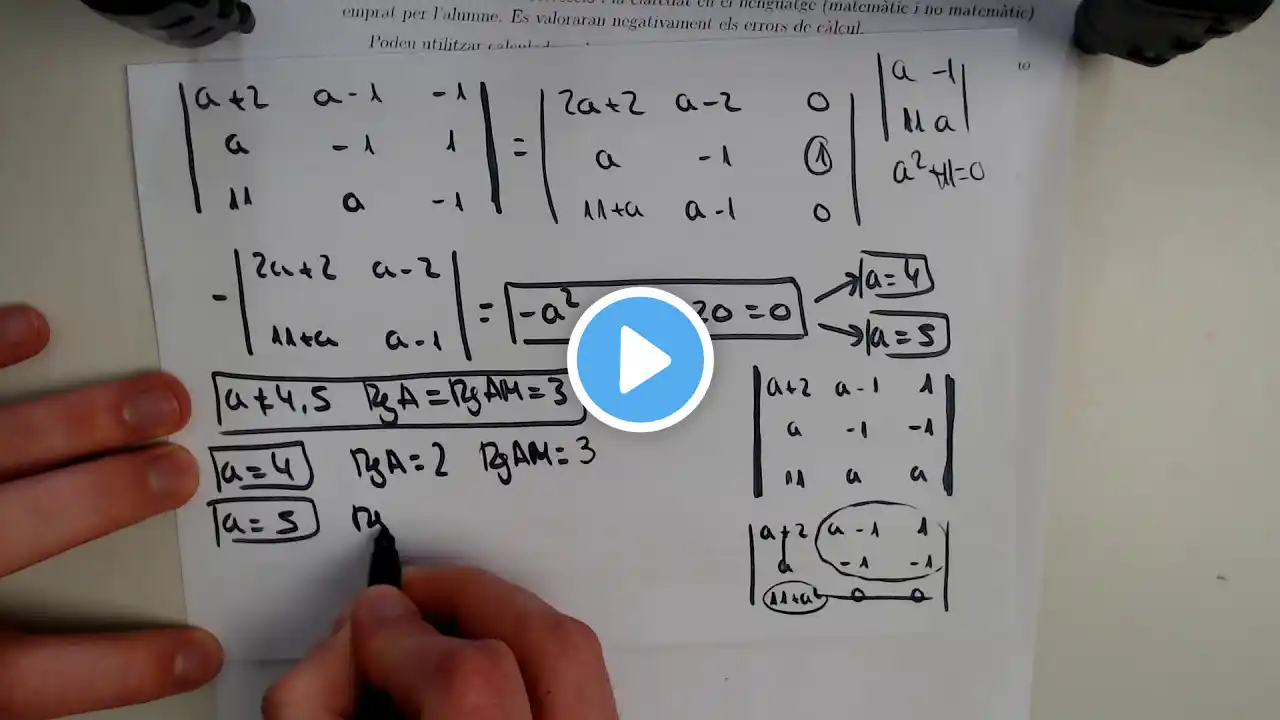 emprat per l'alumne. Es valoraran negativament els errors de càlcul.
Poden utilitzar
10
a+2 a-1 -1
a -1 1
11 a -1
=
2a+2 a-2 0
a -1 1
11+a a-1 0
a -1
11 a
a²+11=0
-
2a+2 a-2
11+a a-1
= -a² 20=0
a=4
a=5
a≠4,5 RgA=RgAM=3
a=4 RgA=2 RgAM=3
a=5 Rg
a+2 a-1 1
a -1 -1
11 a a
a+2 a-1 1
a -1 -1
11+a² 0 0